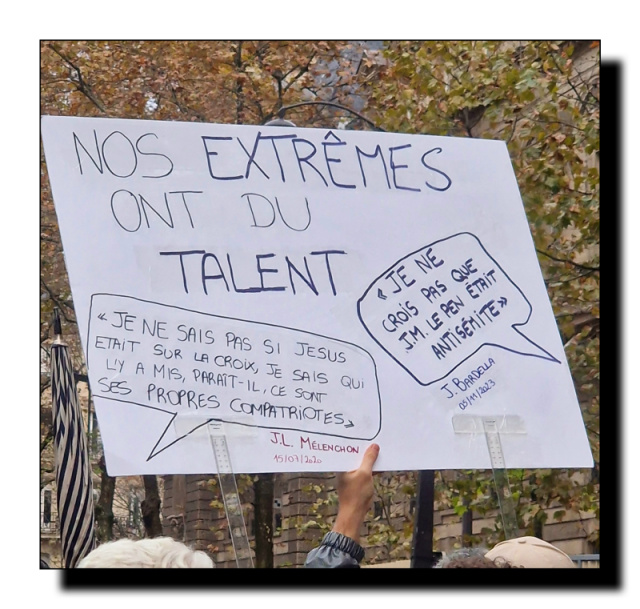 NOS EXTRÊMES
ONT DU
TALENT
« JE NE SAIS PAS SI JESUS
ETAIT SUR LA CROIX, JE SAIS QUI
L'Y A MIS, PARAÎT-IL, CE SONT
SES PROPRES COMPATRIOTES»
J.L. MÉLENCHON
15/07/2020
« JE NE
CROIS PAS QUE
J.M. LE PEN ÉTAIT
ANTISÉMITE»
J. BARDELLA
05/11/2023